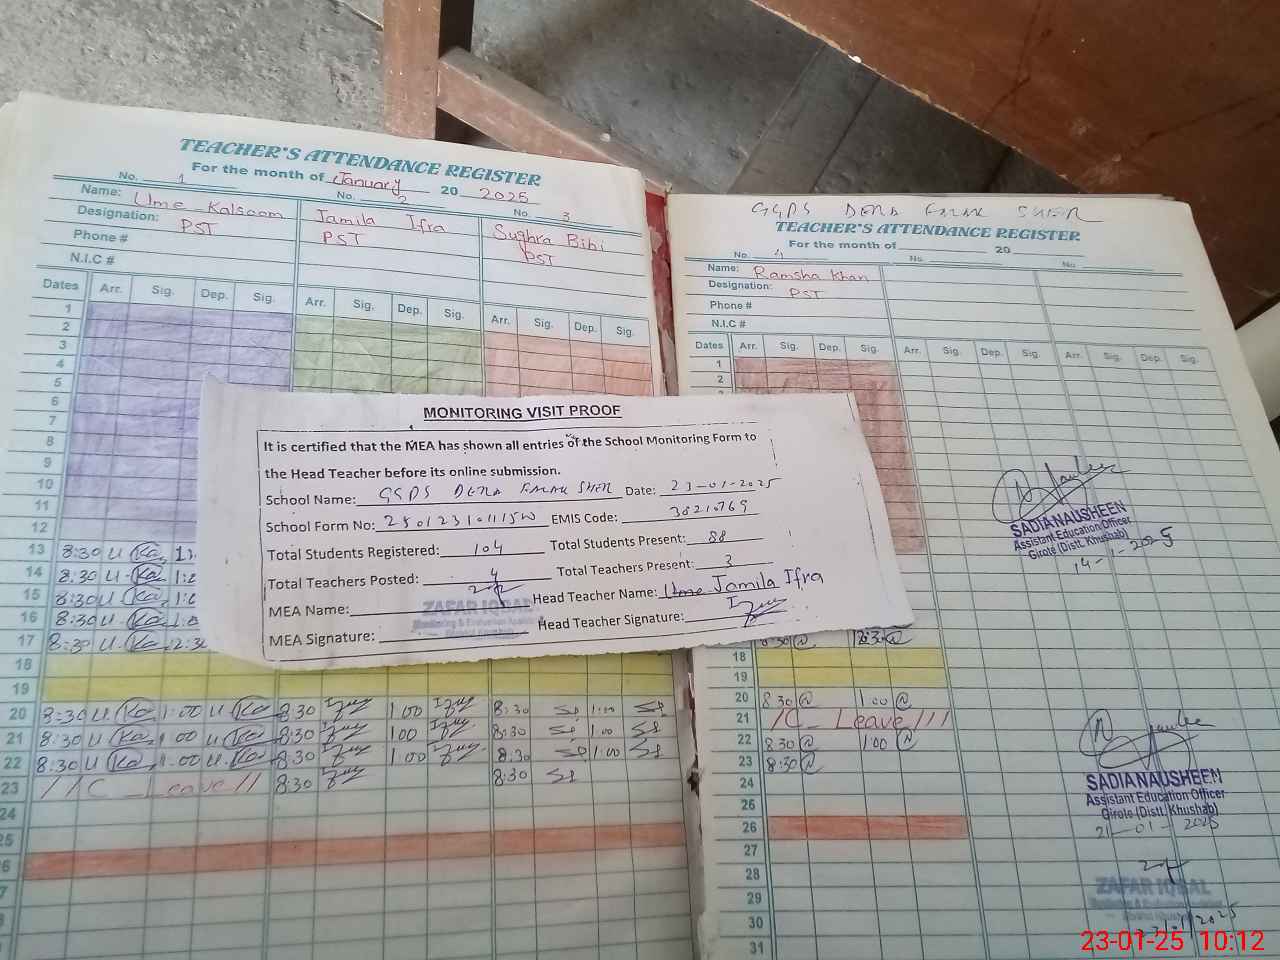 TEACHER'S ATTENDANCE REGISTER
For the month of January 20 2025
No. 1 No. 2 No. 3
Name: Ume Kalsoom Jamila Ifra Sughra Bibi
Designation: PST PST PST
Phone #
N.I.C #
Dates Arr. Sig. Dep. Sig. Arr. Sig. Dep. Sig. Arr. Sig. Dep. Sig.
1
2
3
4
5
6
7
8
9
10
11
12
13 8:30 U.Ka
14 8:30 U.Ka
15 8:30 U.Ka
16 8:30 U.Ka
17 8:30 U.Ka 12:30
18
19
20 8:30 U.Ka 1:00 U.Ka 8:30 1 00 8:30 1:00
21 8:30 U.Ka 1 00 U.Ka 8:30 1 00 8:30 1:00
22 8:30 U.Ka 1:00 U.Ka 8:30 1 00 8:30 1:00
23 //C Leave // 8:30 8:30
24
25
GGPS DERA FALAK SHER
TEACHER'S ATTENDANCE REGISTER
For the month of 20
No. 4 No. No.
Name: Ramsha Khan
Designation: PST
Phone #
N.I.C #
Dates Arr. Sig. Dep. Sig. Arr. Sig. Dep. Sig. Arr. Sig. Dep. Sig.
1
2
8:30 12:30
18
19
20 8 30 1 00
21 /C Leave ///
22 8:30 1:00
23 8:30
24
25
26
27
28
29
30
31
SADIA NAUSHEEN
Assistant Education Officer
Girote (Distt. Khushab)
14-1-2025
SADIA NAUSHEEN
Assistant Education Officer
Girote (Distt. Khushab)
21-01-2025
ZAFAR IQBAL
MONITORING VISIT PROOF
It is certified that the MEA has shown all entries of the School Monitoring Form to
the Head Teacher before its online submission.
School Name: GGPS DERA FALAK SHER Date: 23-01-2025
School Form No: EMIS Code: 38210769
Total Students Registered: 104 Total Students Present: 88
Total Teachers Posted: 4 Total Teachers Present: 3
MEA Name: ZAFAR IQBAL Head Teacher Name: Jamila Ifra
MEA Signature: Head Teacher Signature:
23-01-25 10:12